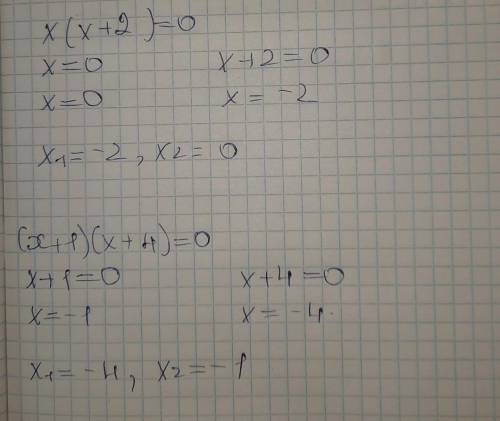 x(x+2)=0
x=0 x+2=0
x=0 x=-2
x1=-2, x2=0
(x+1)(x+4)=0
x+1=0 x+4=0
x=-1 x=-4
x1=-4, x2=-1